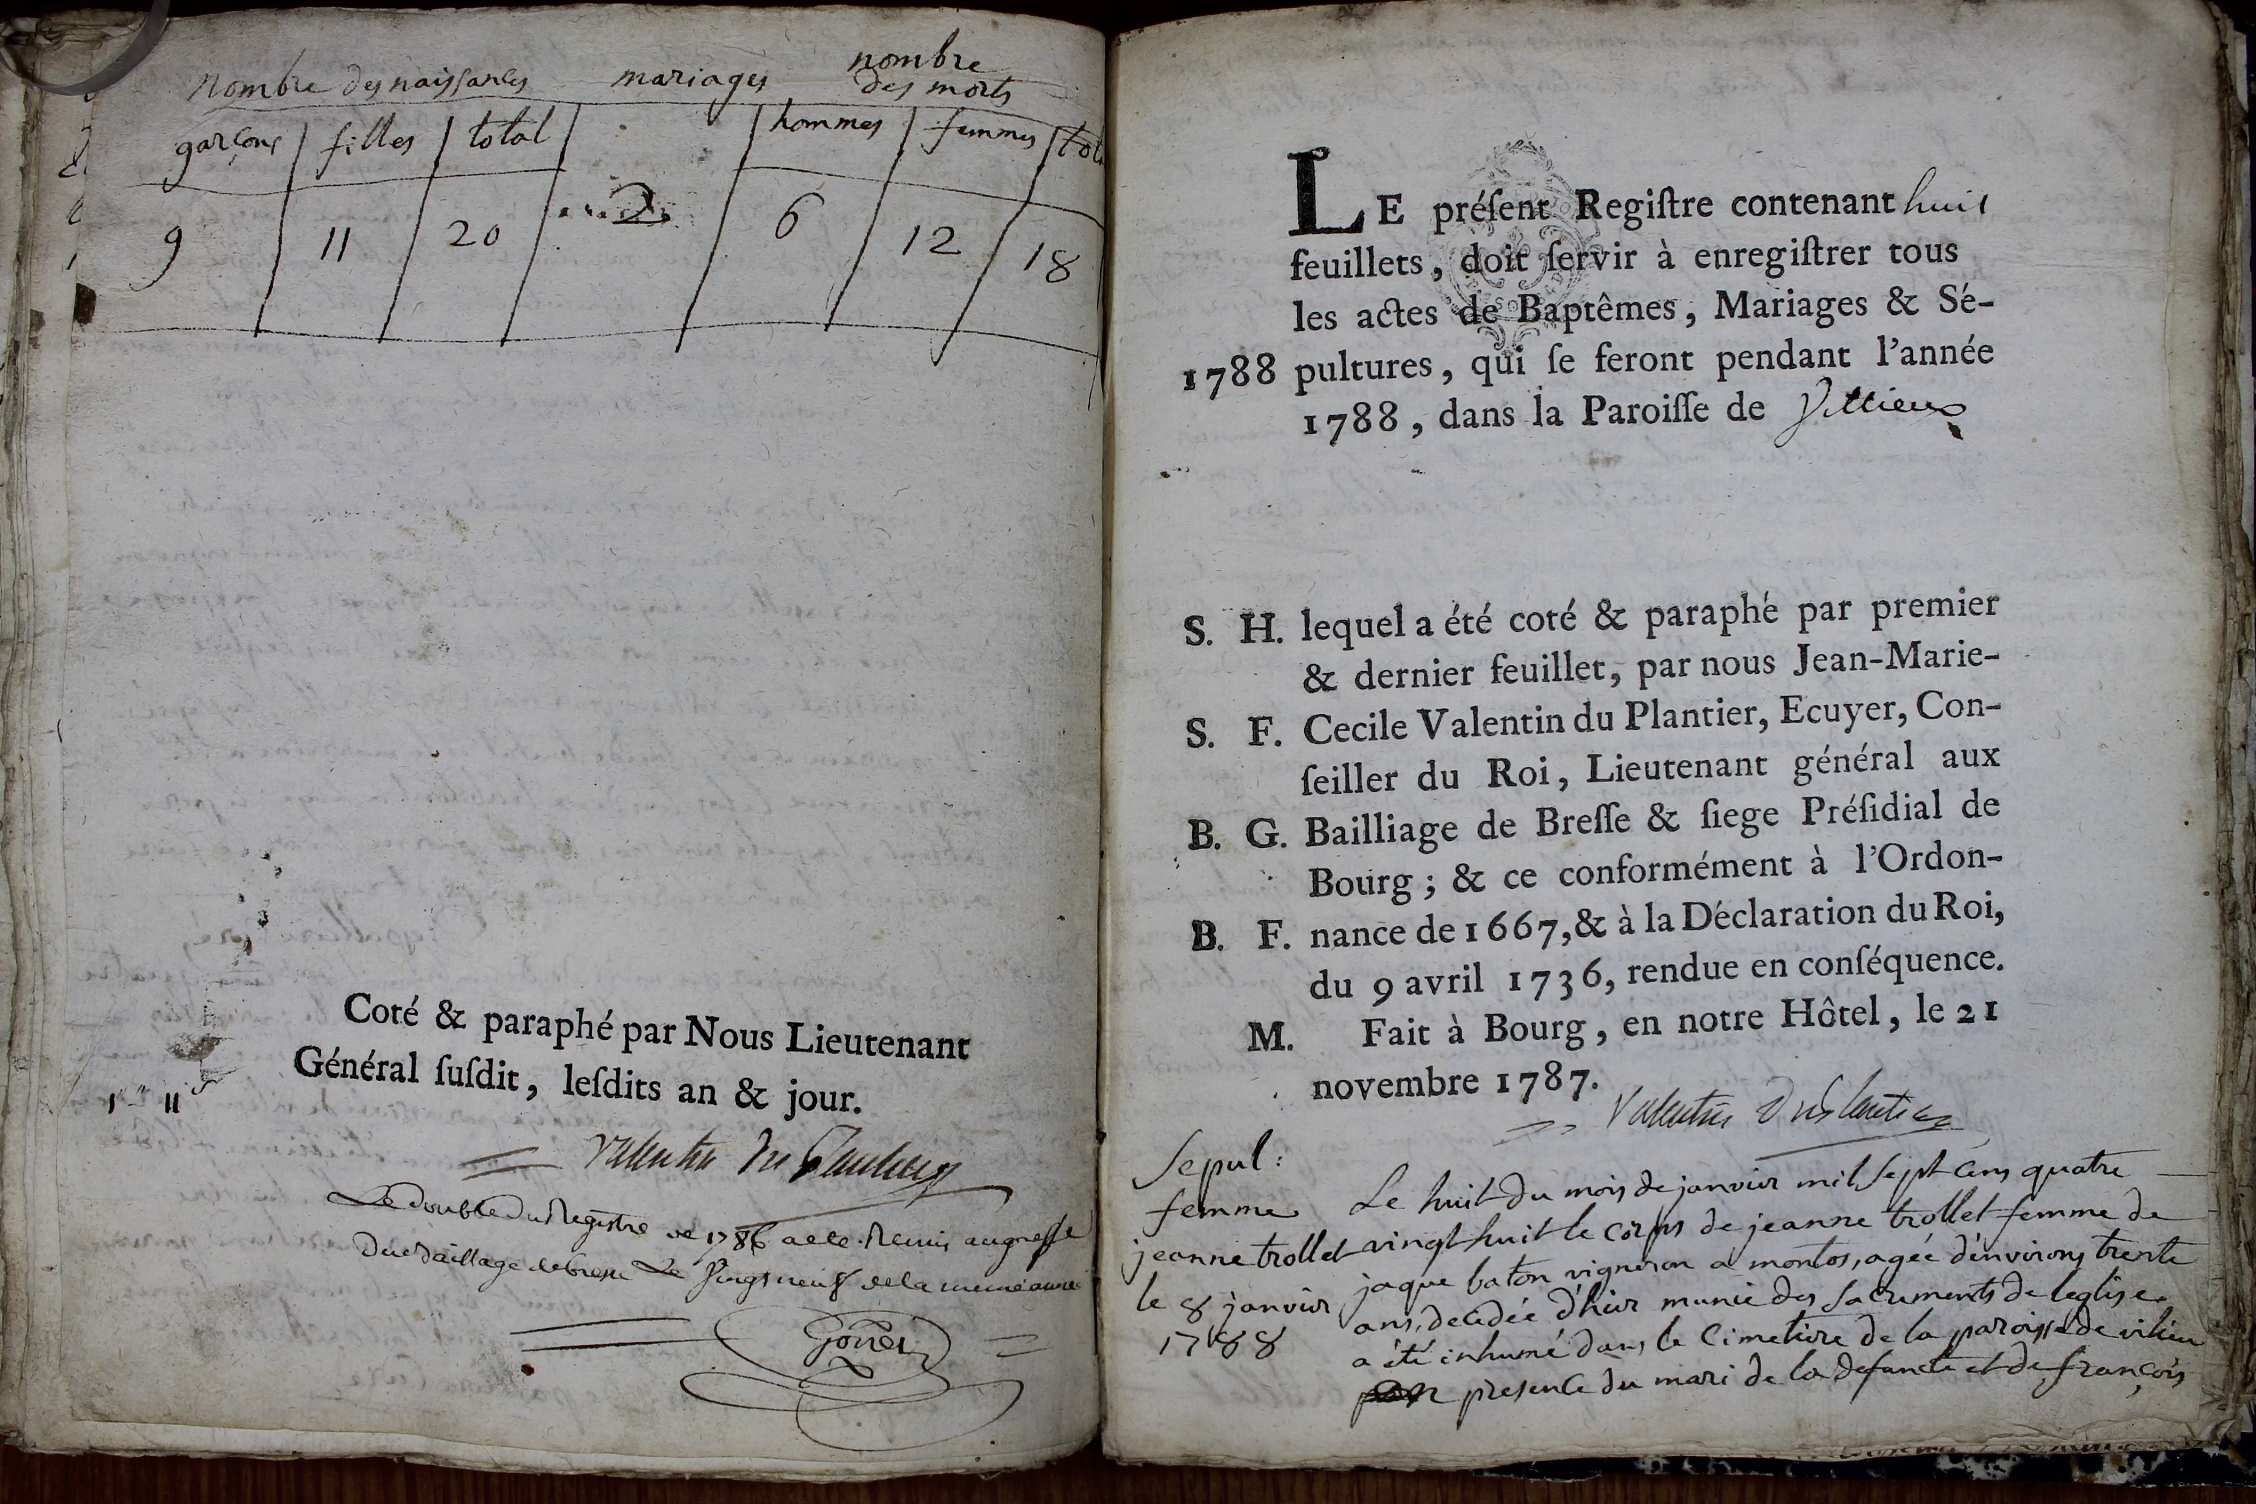 nombre des naissances mariages nombre des morts
garçons filles total hommes femmes tot
9 11 20 2 6 12 18
Coté & paraphé par Nous Lieutenant
Général ſuſdit, leſdits an & jour.
Valentin du Plantier
Le double du Registre de 1786 a ete Remis au greffe
du Bailliage de bresse Le vingt neuf de la meme année
LE préſent Regiſtre contenant huit
feuillets, doit ſervir à enregiſtrer tous
les actes de Baptêmes, Mariages & Sé-
1788 pultures, qui ſe feront pendant l'année
1788, dans la Paroiſſe de Villieux
S. H. lequel a été coté & paraphé par premier
& dernier feuillet, par nous Jean-Marie-
S. F. Cecile Valentin du Plantier, Ecuyer, Con-
ſeiller du Roi, Lieutenant général aux
B. G. Bailliage de Breſſe & ſiege Préſidial de
Bourg; & ce conformément à l'Ordon-
B. F. nance de 1667, & à la Déclaration du Roi,
du 9 avril 1736, rendue en conſéquence.
M. Fait à Bourg, en notre Hôtel, le 21
novembre 1787.
Valentin Duplantier
Sepul:
femme
jeanne trollet
le 8 janvier
1788
Le huit du mois de janvier mil sept cens quatre
vingt huit le corps de jeanne trollet femme de
jaque baton vigneron a montos, agée d'environs trente
ans, decedée d'hier munie des sacrements de leglise
a été inhumé dans le cimetiere de la paroisse de vilieu
presence du mari de la defuncte et de françois